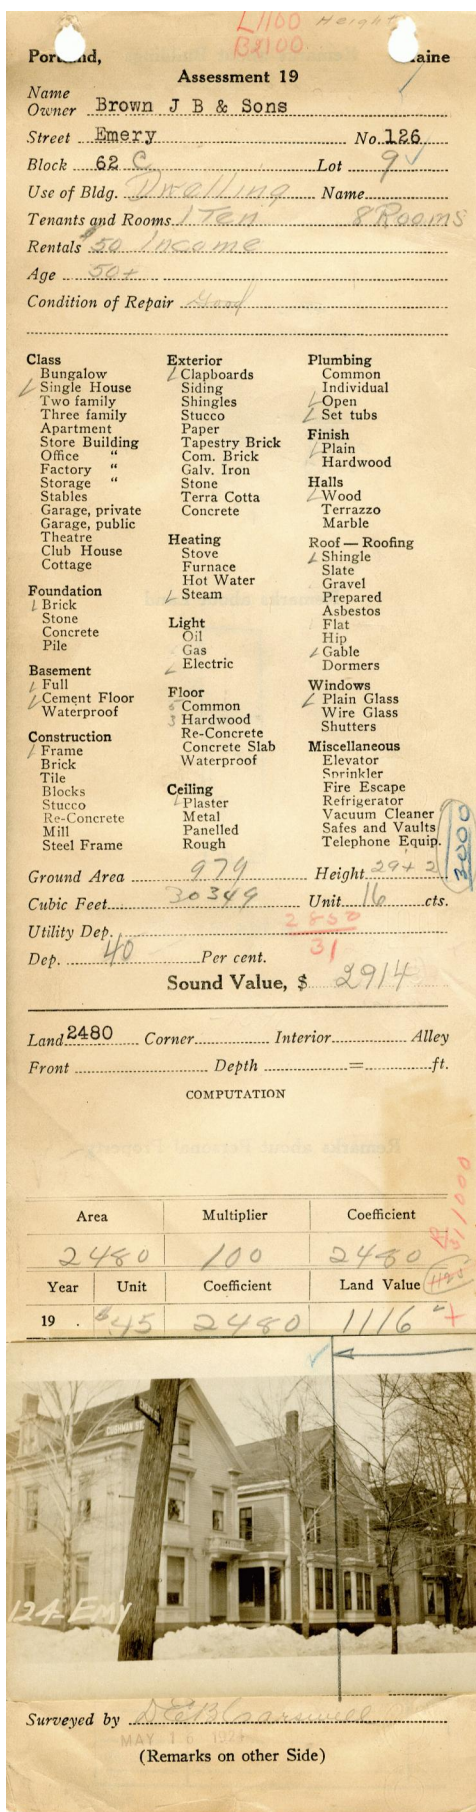 L1100 Height
B2100
Portland, Maine
Assessment 19
Name
Owner Brown J B & Sons
Street Emery No. 126
Block 62 C Lot 9
Use of Bldg. Dwelling Name
Tenants and Rooms 1 Ten 8 Rooms
Rentals $50 Income
Age 50+
Condition of Repair Good
Class
Bungalow
Single House
Two family
Three family
Apartment
Store Building
Office "
Factory "
Storage "
Stables
Garage, private
Garage, public
Theatre
Club House
Cottage
Foundation
Brick
Stone
Concrete
Pile
Basement
Full
Cement Floor
Waterproof
Construction
Frame
Brick
Tile
Blocks
Stucco
Re-Concrete
Mill
Steel Frame
Exterior
Clapboards
Siding
Shingles
Stucco
Paper
Tapestry Brick
Com. Brick
Galv. Iron
Stone
Terra Cotta
Concrete
Heating
Stove
Furnace
Hot Water
Steam
Light
Oil
Gas
Electric
Floor
5 Common
3 Hardwood
Re-Concrete
Concrete Slab
Waterproof
Ceiling
Plaster
Metal
Panelled
Rough
Plumbing
Common
Individual
Open
Set tubs
Finish
Plain
Hardwood
Halls
Wood
Terrazzo
Marble
Roof — Roofing
Shingle
Slate
Gravel
Prepared
Asbestos
Flat
Hip
Gable
Dormers
Windows
Plain Glass
Wire Glass
Shutters
Miscellaneous
Elevator
Sprinkler
Fire Escape
Refrigerator
Vacuum Cleaner
Safes and Vaults
Telephone Equip.
3000
Ground Area 979 Height 29+2
Cubic Feet 30349 Unit 16 cts.
Utility Dep. 2850
31
Dep. 40 Per cent.
Sound Value, $ 2914
Land 2480 Corner Interior Alley
Front Depth = ft.
COMPUTATION
Area Multiplier Coefficient
2480 100 2480
Year Unit Coefficient Land Value
19 . $45 2480 1116
CUSHMAN ST
124-Emy
Surveyed by D E B Carswell
MAY 16 1924
(Remarks on other Side)